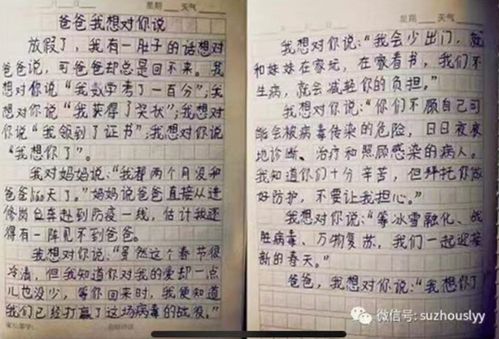 星期 天气
爸爸我想对你说
放假了，我有一肚子的话想对
爸爸说，可爸爸却总是回不来。我
想对你说“我数学考了一百分”；我
想对你说“我获得了奖状”；我想对
你说“我领到了证书”；我想对你说
“我想你了”。
我对妈妈说：“我都两个月没和
爸爸聊天了。”妈妈说爸爸直接从进
修岗位车赶到防疫一线，估计我还
得有一阵见不到爸爸。
我想对你说：“虽然这个春节很
冷清，但我知道你对我的爱却一点
儿也没少，等你回来时，我便知道
我们已经打赢了这场病毒的战役。”
星期 天气
我想对你说：“我会少出门，就
和妹妹在家玩，在家看书，我们不
生病，就会减轻你的负担。”
我想对你说：“你们不顾自己可
能会被病毒传染的危险，日日夜夜
地诊断、治疗和照顾感染的病人。
我知道你们十分辛苦，但拜托你做
好防护，不要让我担心。”
我想对你说：“等冰雪融化、战
胜病毒、万物复苏，我们一起迎接
新的春天。”
爸爸，我想对你说：“我想你了
微信号: suzhouslyy